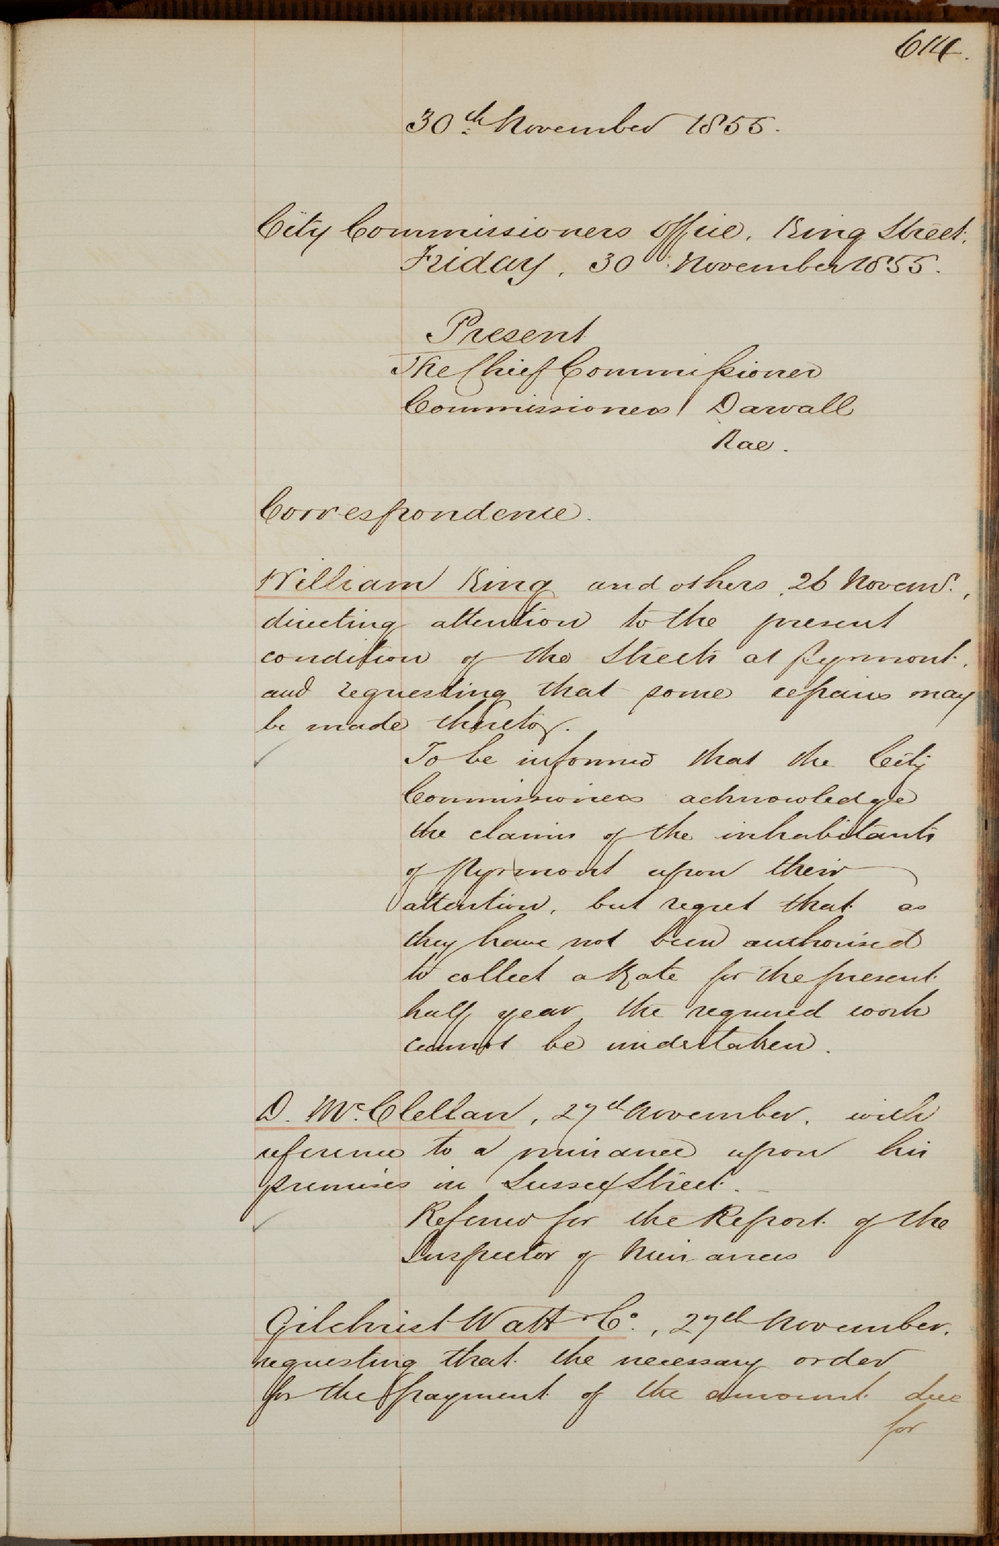 614.
30th November 1855.
City Commissioners Office, King Street,
Friday, 30 November 1855.
Present
The Chief Commissioner
Commissioners Darvall
Rae.
Correspondence.
William King and others, 26 Novemr.,
directing attention to the present
condition of the Streets at Pyrmont,
and requesting that some repairs may
be made thereto.
To be informed that the City
Commissioners acknowledge
the claims of the inhabitants
of Pyrmont upon their
attention, but regret that as
they have not been authorised
to collect a Rate for the present
half year the required work
cannot be undertaken.
D. McClellan, 27th November, with
reference to a nuisance upon his
premises in Sussex Street.
Referred for the Report of the
Inspector of Nuisances
Gilchrist Watt & Co., 27th November,
requesting that the necessary order
for the payment of the amount due
for